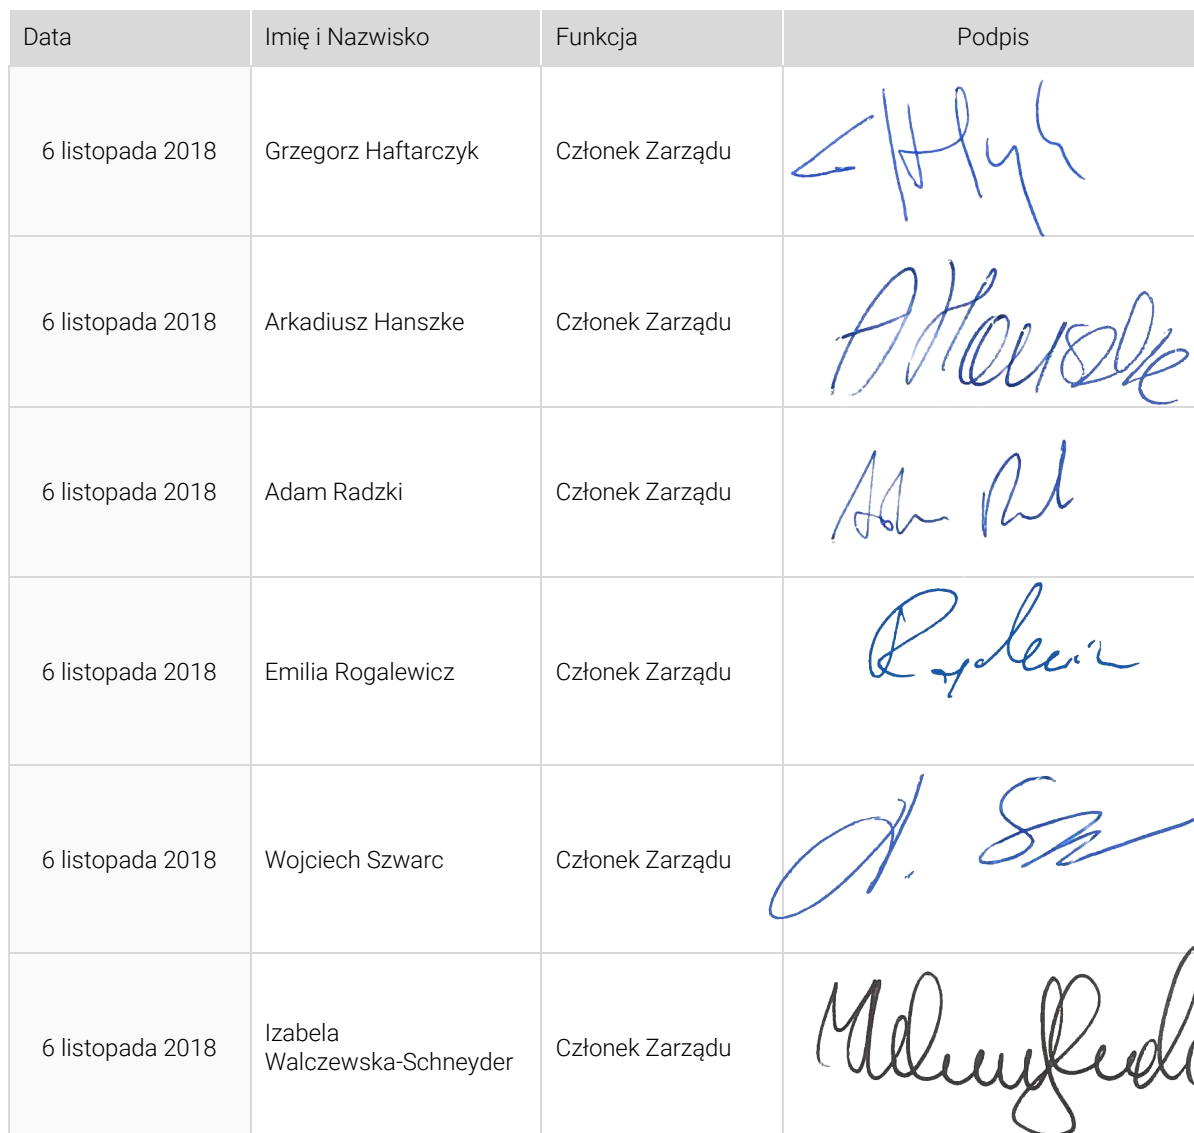 Data Imię i Nazwisko Funkcja Podpis
6 listopada 2018 Grzegorz Haftarczyk Członek Zarządu
6 listopada 2018 Arkadiusz Hanszke Członek Zarządu AHanszke
6 listopada 2018 Adam Radzki Członek Zarządu
6 listopada 2018 Emilia Rogalewicz Członek Zarządu
6 listopada 2018 Wojciech Szwarc Członek Zarządu
6 listopada 2018 Izabela
Walczewska-Schneyder Członek Zarządu